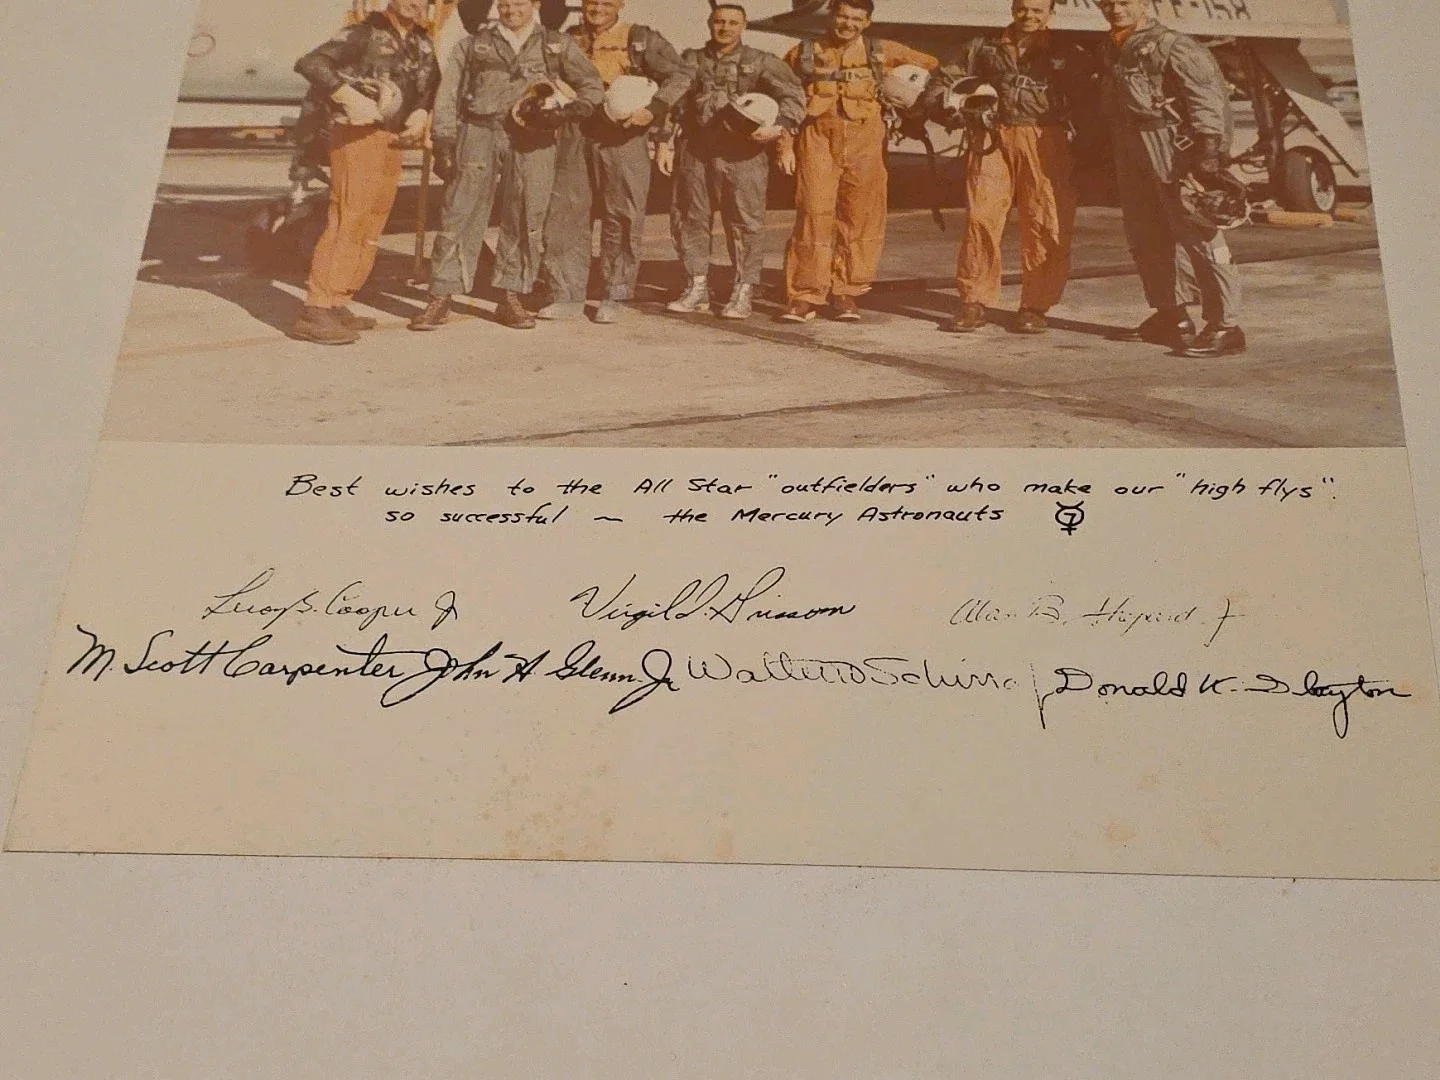 Best wishes to the All Star "outfielders" who make our "high flys".
so successful ~ the Mercury Astronauts
Leroy G. Cooper Jr Virgil I. Grissom Alan B. Shepard Jr
M. Scott Carpenter John H Glenn Jr Walter M Schirra Donald K. Slayton